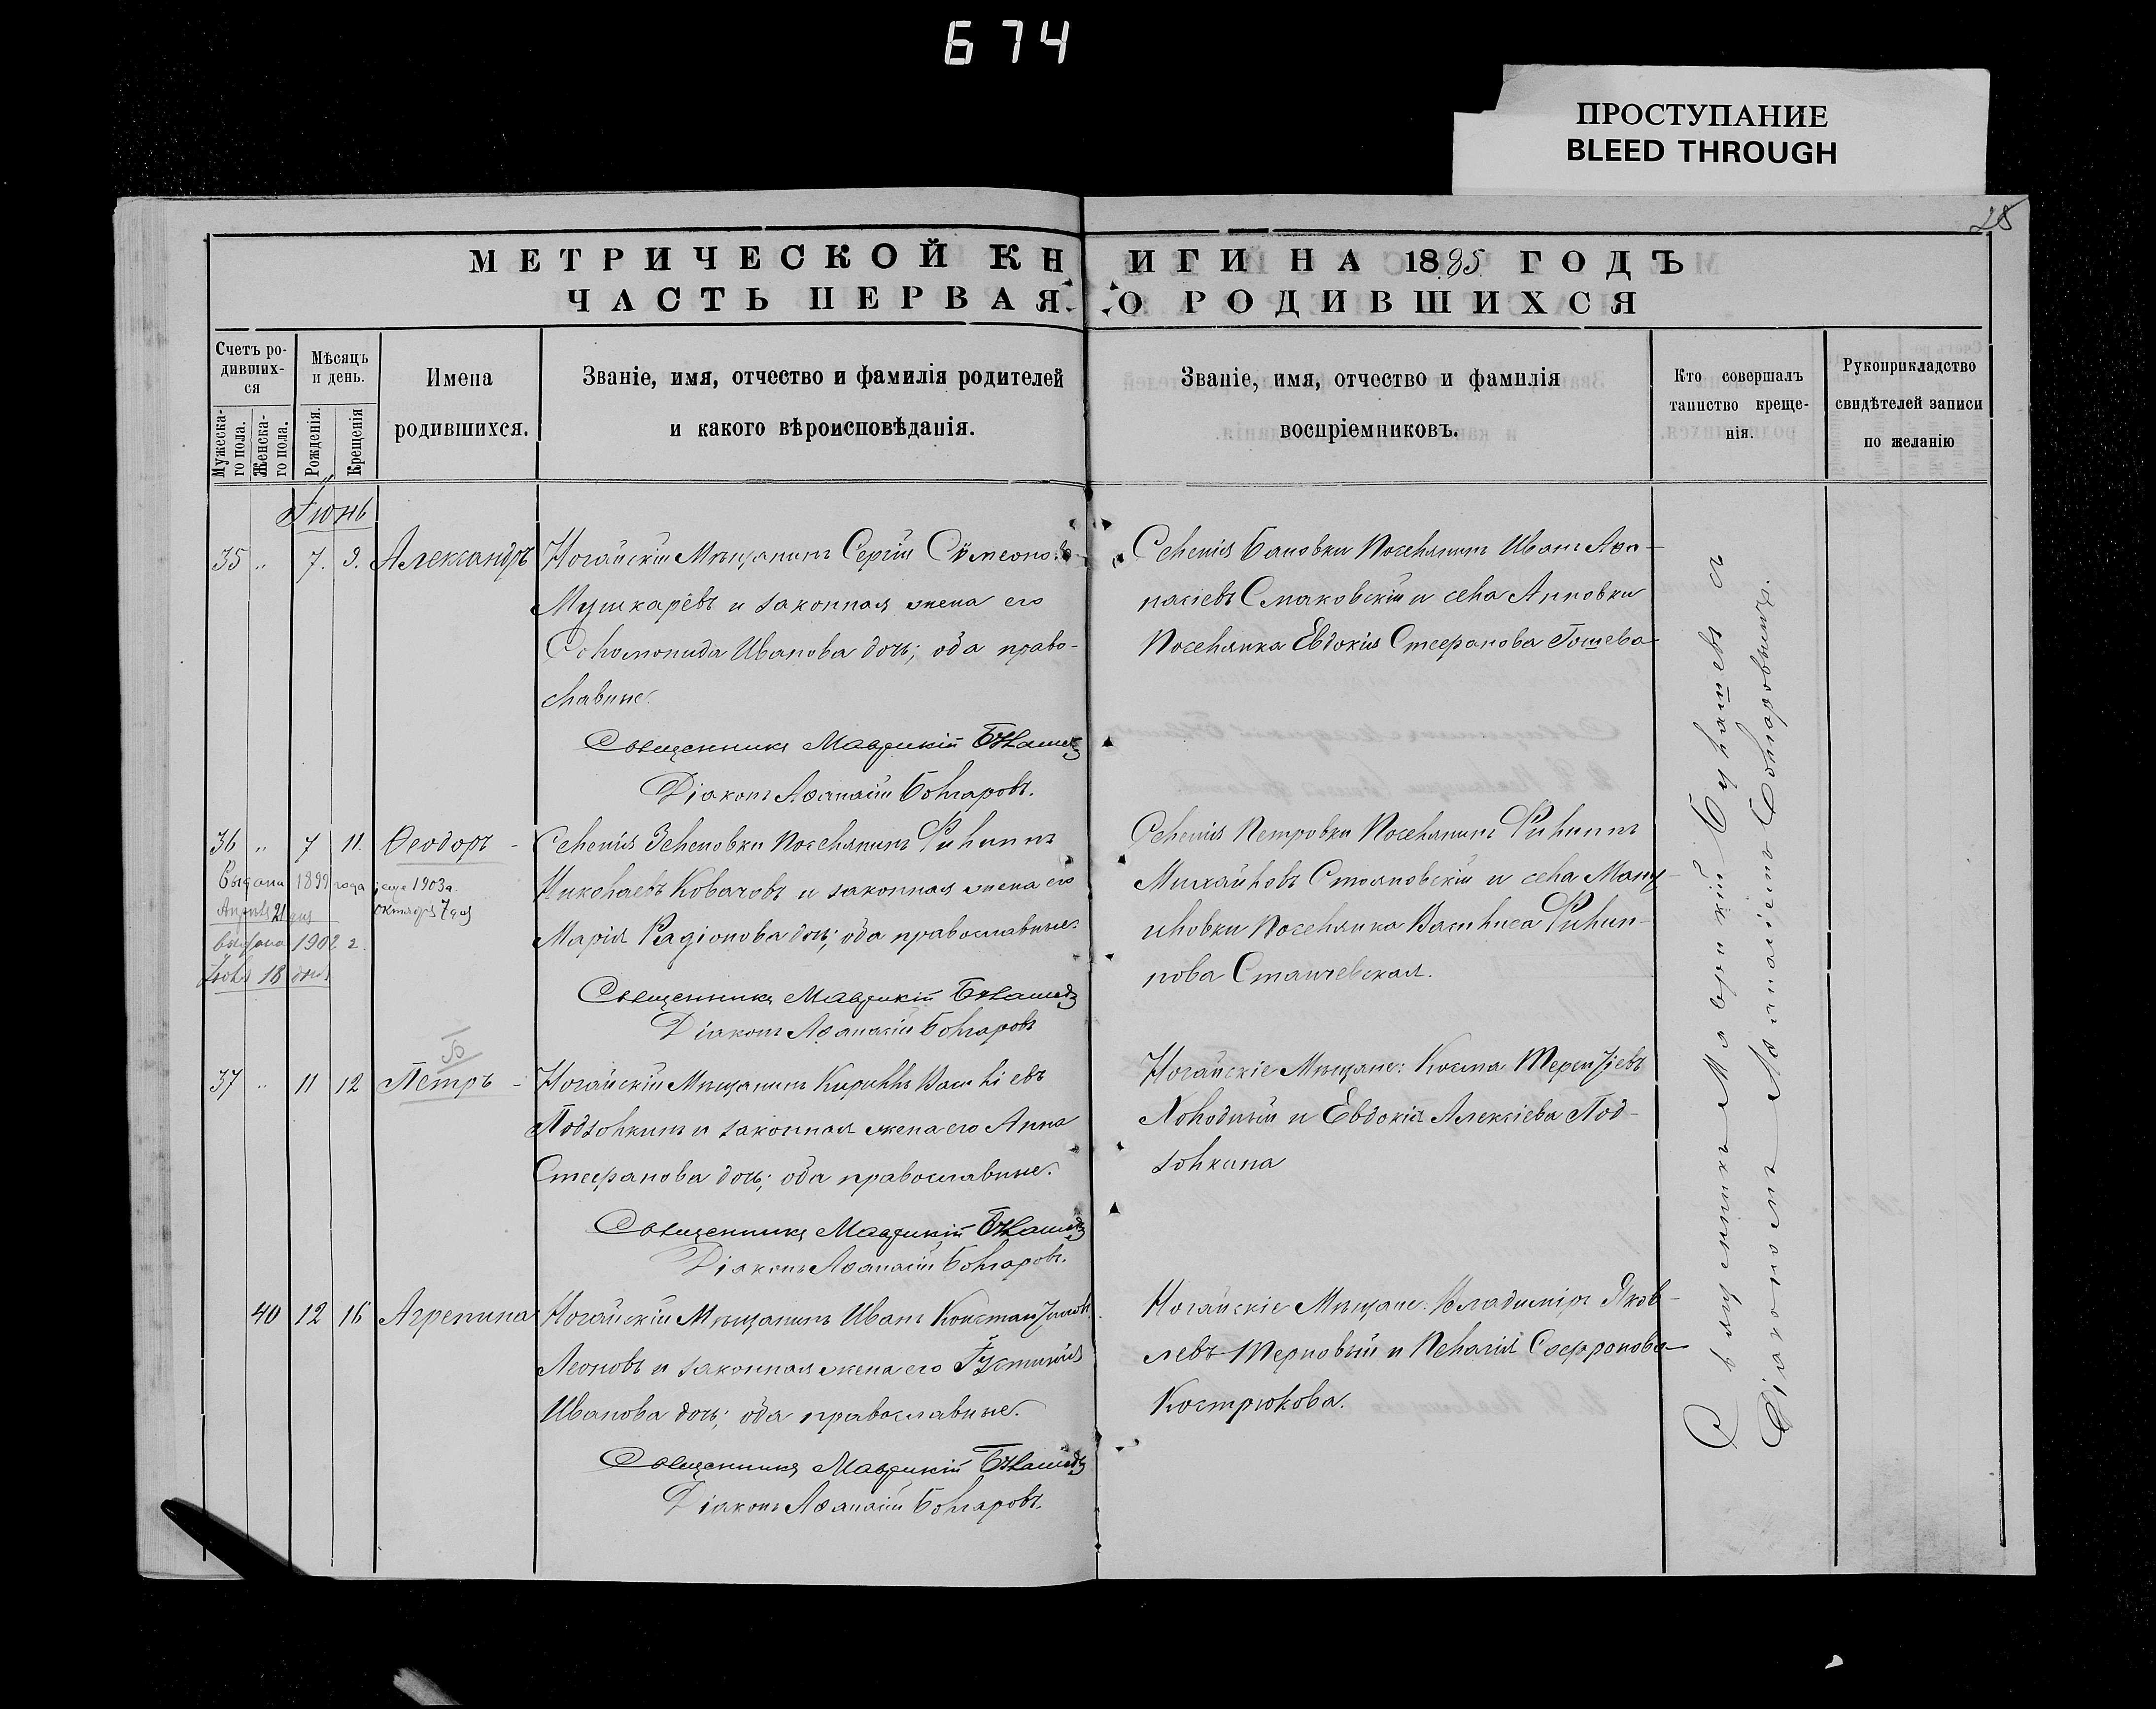 674
ПРОСТУПАНИЕ
BLEED THROUGH
28
МЕТРИЧЕСКОЙ КНИГИ НА 1885 ГОДЪ
ЧАСТЬ ПЕРВАЯ. О РОДИВШИХСЯ
Счетъ ро-
дивших-
ся
Мужеска-
го пола.
Женска-
го пола.
Мѣсяцъ
и день.
Рожденія.
Крещенія
Имена
родившихся.
Званіе, имя, отчество и фамилія родителей
и какого вѣроисповѣданія.
Званіе, имя, отчество и фамилія
воспріемниковъ.
Кто совершалъ
таинство креще-
нія.
Рукоприкладство
свидѣтелей записи
по желанію
Іюнь
35 " 7. 9. Александръ
Ногайскій Мѣщанинъ Сергій Сѵмеоновъ
Мушкарёвъ и законная жена его
Соломонида Ивановa дочь; оба право-
славные.
Священникъ Маврикій
Діаконъ Аѳанасій Болгаровъ.
Селенія Бановки Поселянинъ Иванъ Аѳа-
насіевъ Смаковскій и села Анновки
Поселянка Евдокія Стефанова Гошева
36 " 7 11. Ѳеодоръ
Выдана 1899 года
еще 1903 г.
21
октября 7 дня
выдана 1902 г.
18 дня
Селенія Зеленовки Поселянинъ Филиппъ
Николаевъ Ковачовъ и законная жена его
Марія Радіонова дочь; оба православные.
Священникъ Маврикій
Діаконъ Аѳанасій Болгаровъ
Селенія Петровки Поселянинъ Филиппъ
Михайловъ Стояновскій и села Ману-
йловки Поселянка Василиса Филип-
пова Станчевская.
37 " 11 12 Петръ
Ногайскій Мѣщанинъ Кириллъ Васильевъ
Подзолкинъ и законная жена его Анна
Стефанова дочь; оба православные.
Священникъ Маврикій
Діаконъ Аѳанасій Болгаровъ.
Ногайскіе Мѣщане: Косма Терентіевъ
Холодный и Евдокія Алексіева Под-
золкина
40 12 16 Агрепина
Ногайскій Мѣщанинъ Иванъ Константиновъ
Леоновъ и законная жена его Іустинія
Иванова дочь; оба православные.
Священникъ Маврикій
Діаконъ Аѳанасій Болгаровъ.
Ногайскіе Мѣщане: Владиміръ Яков-
левъ Терновый и Пелагія Софронова
Кострюкова.
Священникъ Маврикій съ
Діакономъ Аѳанасіемъ Болгаровымъ.